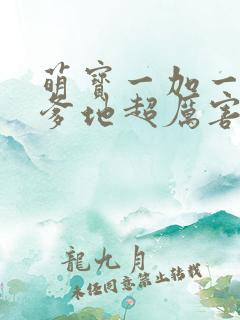 萌寶一加一
爹地超厲害
龍九月
未经同意禁止转载